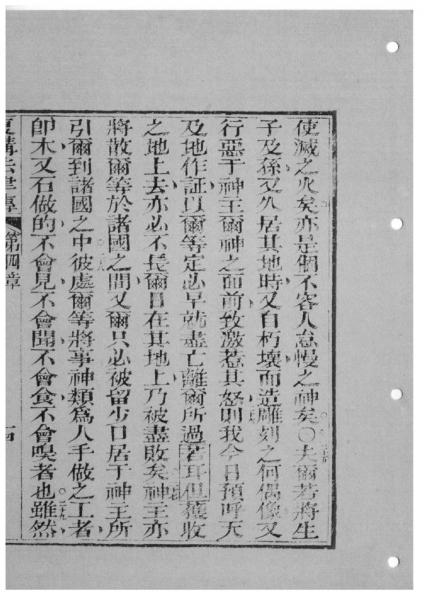 使滅之火矣亦是個不容人怠慢之神矣○夫爾若將生
子及孫又久居其地時又自朽壞而造雕刻之何偶像又
行惡于神主爾神之面前致激惹其怒則我今日預呼天
及地作証以爾等定必早就盡亡離爾所過若耳但獲收
之地上去亦必不長爾日在其地上乃被盡敗矣神主亦
將散爾等於諸國之間又爾只必被留少口居于神主所
引爾到諸國之中彼處爾等將事神類為人手做之工者
即木又石做的不會見不會聞不會食不會嗅者也雖然
復講法律傳 第四章 十四